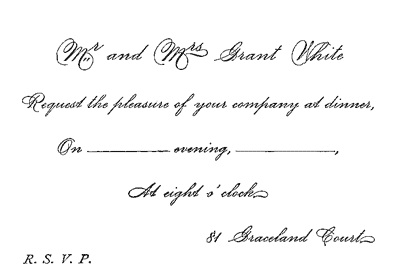 Mr and Mrs Grant White
Request the pleasure of your company at dinner,
On ________ evening, ________,
At eight o'clock
81 Graceland Court
R. S. V. P.